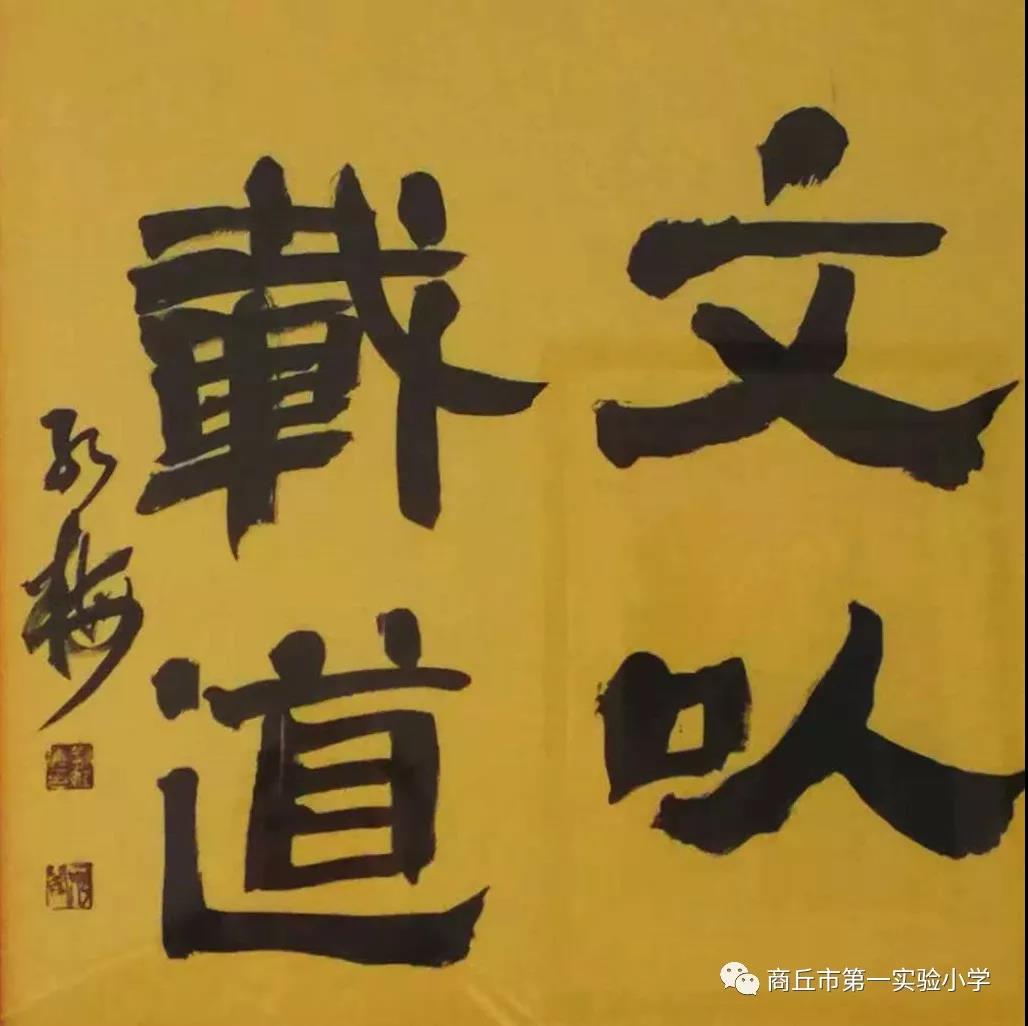 文以
載道
商丘市第一实验小学